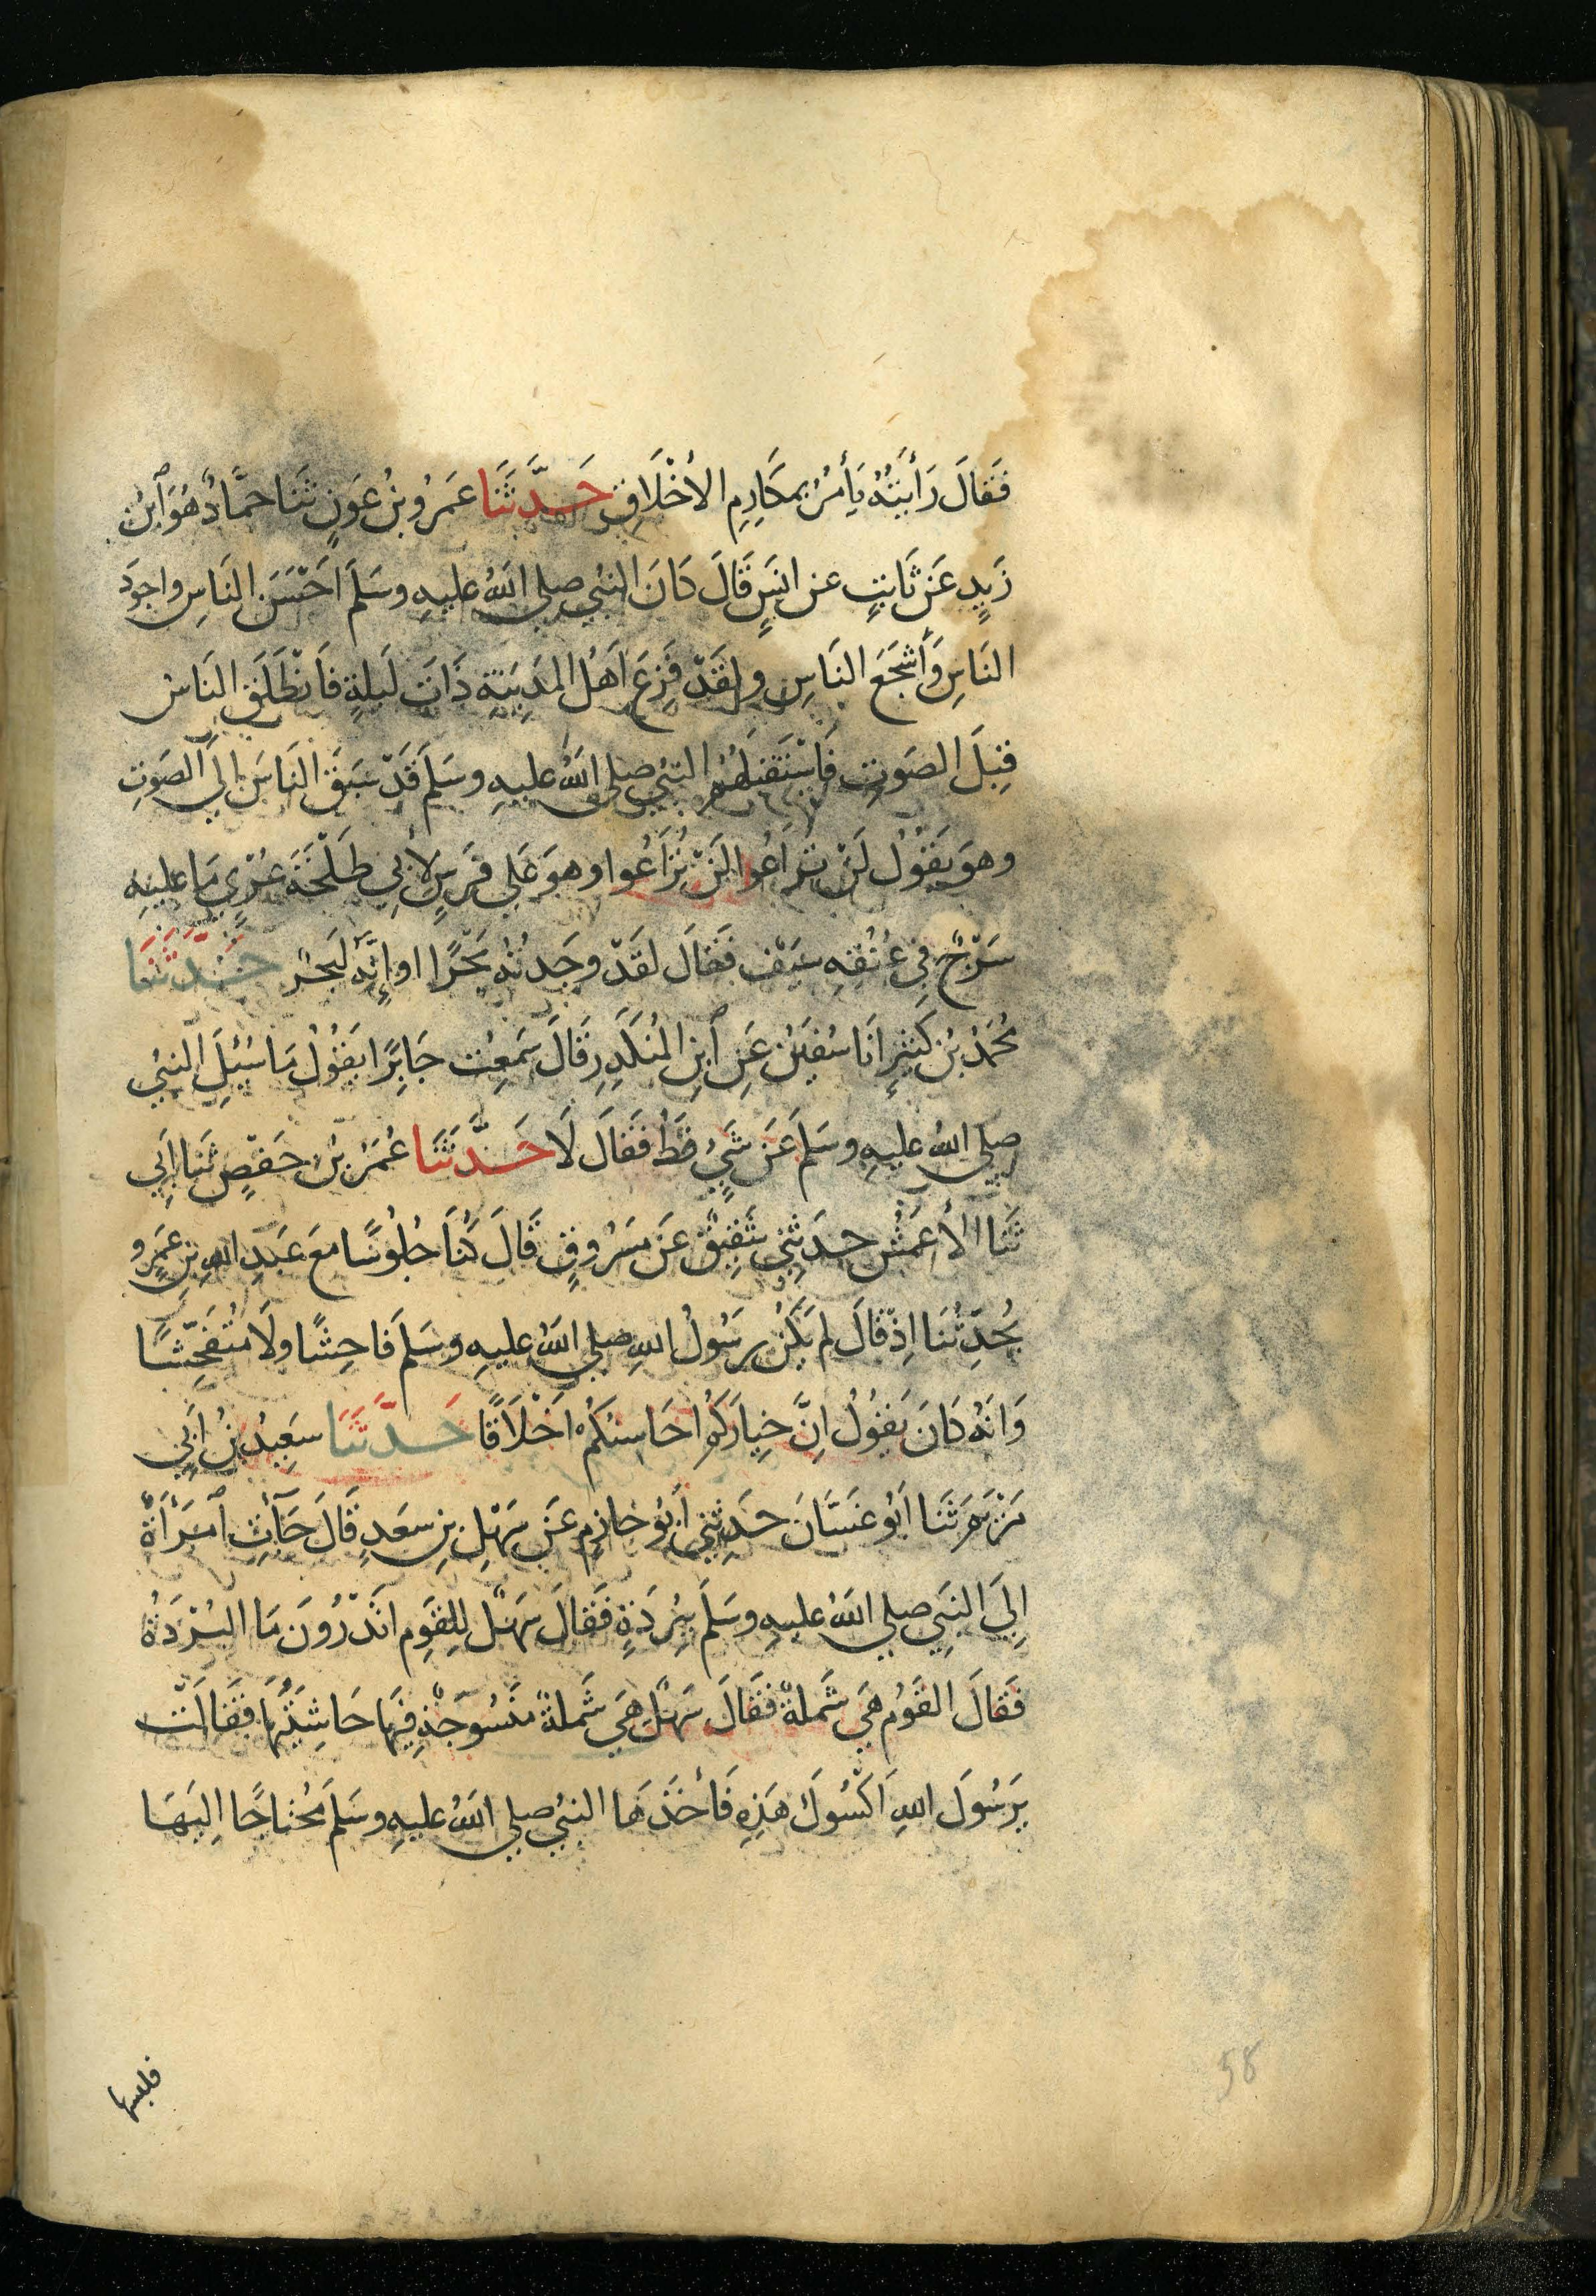 فَقَالَ رَأَيْتُهُ يَأْمُرُ بِمَكَارِمِ الأَخْلَاقِ حَدَّثَنَا عَمْرُو بْنُ عَوْنٍ ثَنَا حَمَّادٌ هُوَ ابْنُ
زَيْدٍ عَنْ ثَابِتٍ عن انَسٍ قَالَ كَانَ النبيُ صلي اللهُ عليهِ وسَلَّمَ احْسَنَ النَاسِ واجوَدَ
النَاسِ وَأَشْجَعَ النَاسِ ولقَدْ فَزِعَ اَهْلُ المَدِينَةِ ذَاتَ لَيلةٍ فَانْطَلَقَ النَاسُ
قِبَلَ الصَوتِ فَاسْتَقْبَلَهُم النبيُ صلي اللهُ عليهِ وسَلم قَدْ سَبَقَ النَاسَ اِلَي الصَوتِ
وهوَ يقُوْلُ لَنْ تُرَاعُوا لَنْ تُرَاعُوا وهوَ عَلي فَرَسٍ لأبِي طَلْحَةَ عُرْيٍ مَا عليهِ
سَرْجٌ فِي عُنُقِهِ سَيْف فَقَالَ لقَدْ وجَدتُهُ بَحْرًا او إِنَّهُ لَبَحْرٌ حَدَّثَنَا
مُحَمَدُ بْنُ كَثِيْرٍ اَنَا سُفْيٰنُ عَنِ ابنِ المُنكَدِرِ قَالَ سَمِعْت جَابِرًا يقُوْلُ مَا سُئِلَ النبيُ
صلي اللهُ عليهِ وسَلم عَنْ شَيْءٍ قَطُ فَقَالَ لَا حَدَّثَنَا عُمَرُ بْنُ حَفْصٍ ثَنَا اَبِي
ثَنَا الأَعْمَشُ حدَثَنِي شَقِيْقٌ عَنْ مَسْرُوقٍ قَالَ كُنَا جُلُوسًا معَ عَبدِ اللهِ بْنِ عَمْرٍو
يُحَدِّثُنَا اِذْ قَالَ لم يَكُنْ رسُولُ اللهِ صلي اللهُ عليهِ وسَلم فَاحِشًا ولَا مُتَفَحِّشًا
وَانَهُ كَانَ يَقُوْلُ اِنَّ خِيارَكُمْ احَاسنُكُمْ اخْلَاقًا حَدَّثَنَا سَعِيْدُ بْنُ اَبِي
مَرْيَم ثَنَا اَبُو غَسَّانَ حَدَثَنِي اَبُو حَازمٍ عَنْ سَهْلِ بنِ سعَدٍ قَالَ جَاءَتِ امْرَأَةٌ
اِلَيَ النبَيِ صلي اللهُ عليهِ وسَلَّم بِبُرْدَةٍ فَقَالَ سَهْلٌ لِلقَومِ اتَدْرُونَ مَا البُرْدَةُ
فَقَالَ القَوْمُ هِيَ شَملَةٌ فَقَالَ سَهْلٌ هِيَ شَملةٌ مَنْسُوجَةٌ فِيْهَا حَاشِيَتُهَا فَقَالَتْ
يرَسُولَ اللهِ اَكْسُوكَ هَذِهِ فَأَخَذَهَا النبيُ صلي اللهُ عليهِ وسَلم مُحْتاجًا الِيهَا
فلبسها
58